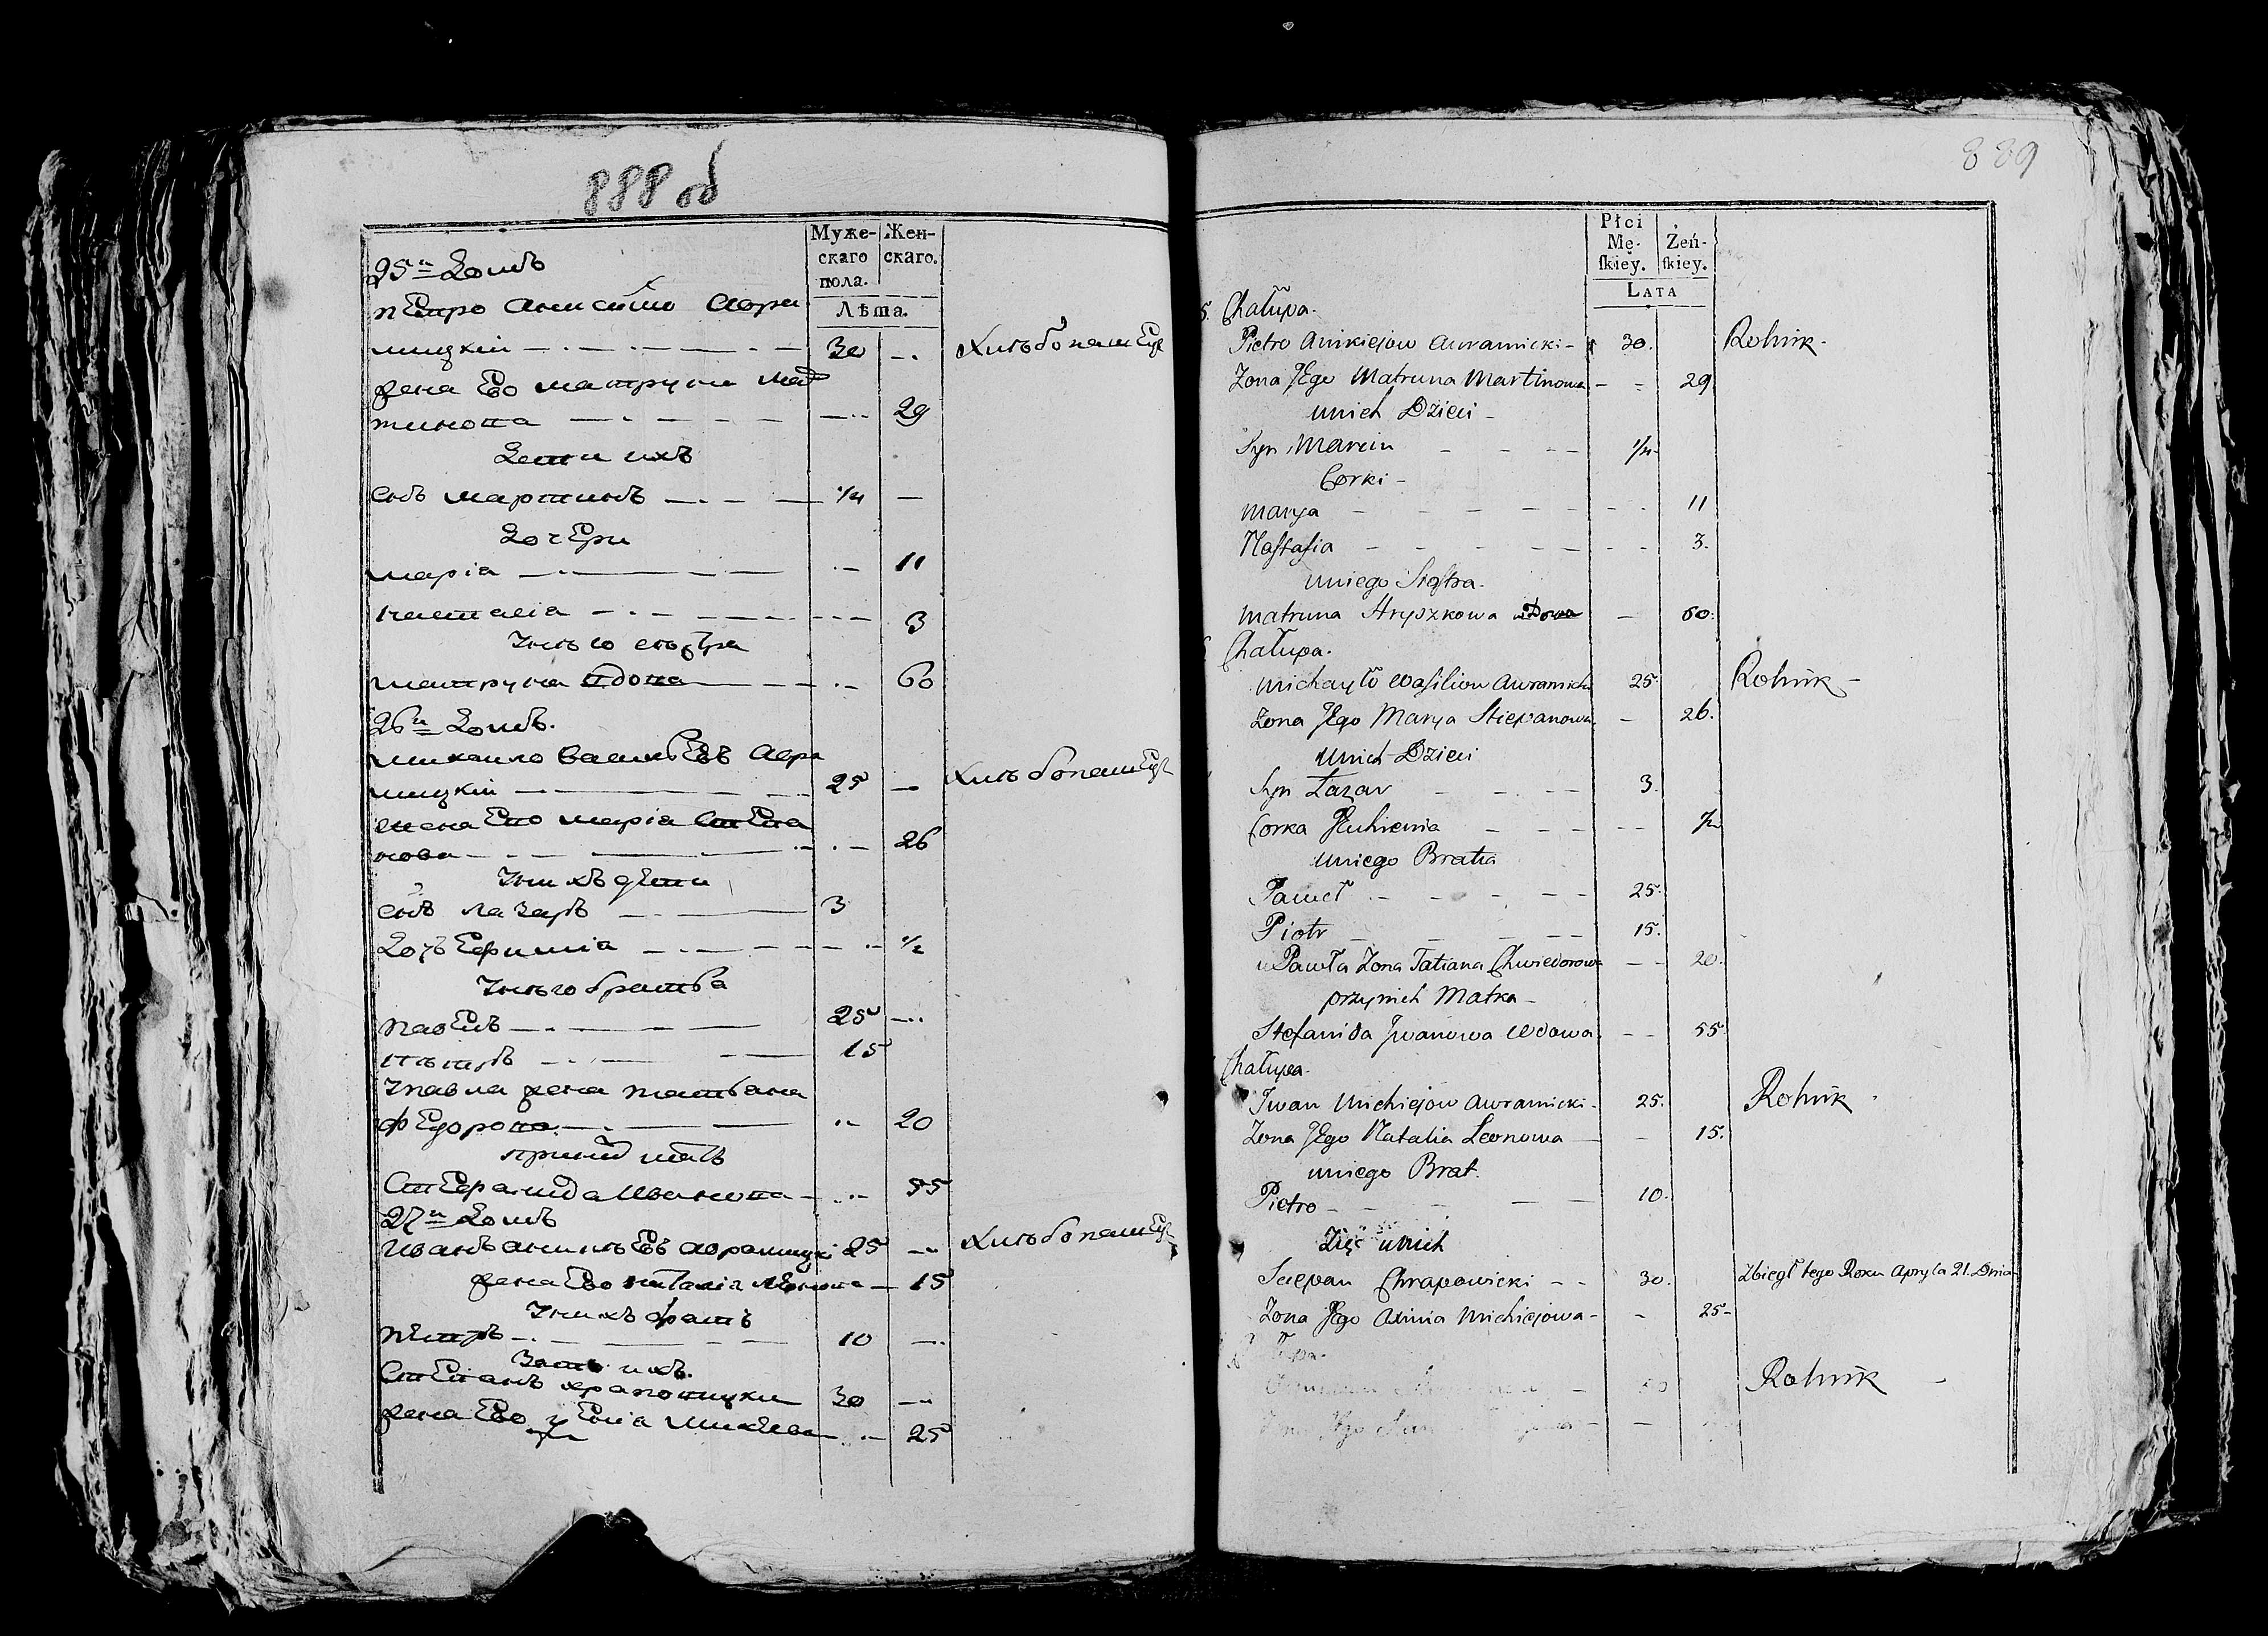 888 об
Муже-
скаго
пола.
Жен-
скаго.
Лѣта.
25й Домъ
Петро Авра
мицкій 30 Хлѣбопашец
жена Ево Матруна Мар
тинова 29
Дети ихъ
снъ Мартинъ 1/4
Дочери
Маріа 11
Настасіа 3
У него сестра
Матруна вдова 60
26й Домъ.
Михаило Василѣевъ Авра
мицкій 25 Хлѣбопашец
жена Ево Маріа Степа
нова 26
У нихъ дети
снъ Лазаръ 3
Дочъ Ефиміа 1/2
У него братьа
Павелъ 25
Пѣтръ 15
У Павла жена Татьана
Федорова 20
при них мать
Стефанида Иванова 55
27й Домъ
Иванъ Аврамицкі 25 Хлѣбопашец
жена Ево Наталіа Леонова 15
У нихъ братъ
Петръ 10
Зять ихъ.
Степанъ Храповицки 30
жена Ево Михеева 25
889
Płci
Mę-
ſkiey.
Żeń-
ſkiey.
LATA
5. Chałupa.
Pietro Awramicki 30. Rolnik
Zona JEgo Matruna Martinowa 29
unich Dzieci
Syn Marcin 1/4
Corki
Marya 11
Naſtaſia 3.
uniego Sioſtra
Matruna Hryszkowa wDowa 60.
Chałupa.
Michayło Waſiliow Awramicki 25. Rolnik
Zona JEgo Marya Stiepanowa 26.
unich Dzieci
Syn Łazar 3.
Corka 1/2
uniego Bratia
Paweł 25.
Piotr 15.
u Pawła Zona Tatiana Chwiedorowa 20.
przynich Matka
Stefanida Jwanowa Wdowa 55
Chałupa.
Jwan Michiejow Awramicki 25. Rolnik
Zona JEgo Natalia Leonowa 15.
uniego Brat.
Pietro 10.
Zięć unich
Sciepan Chrapowicki 30. Zbiegł tego Roku Apryla 21. Dnia
Zona JEgo Axinia Michiejowa 25
Rolnik